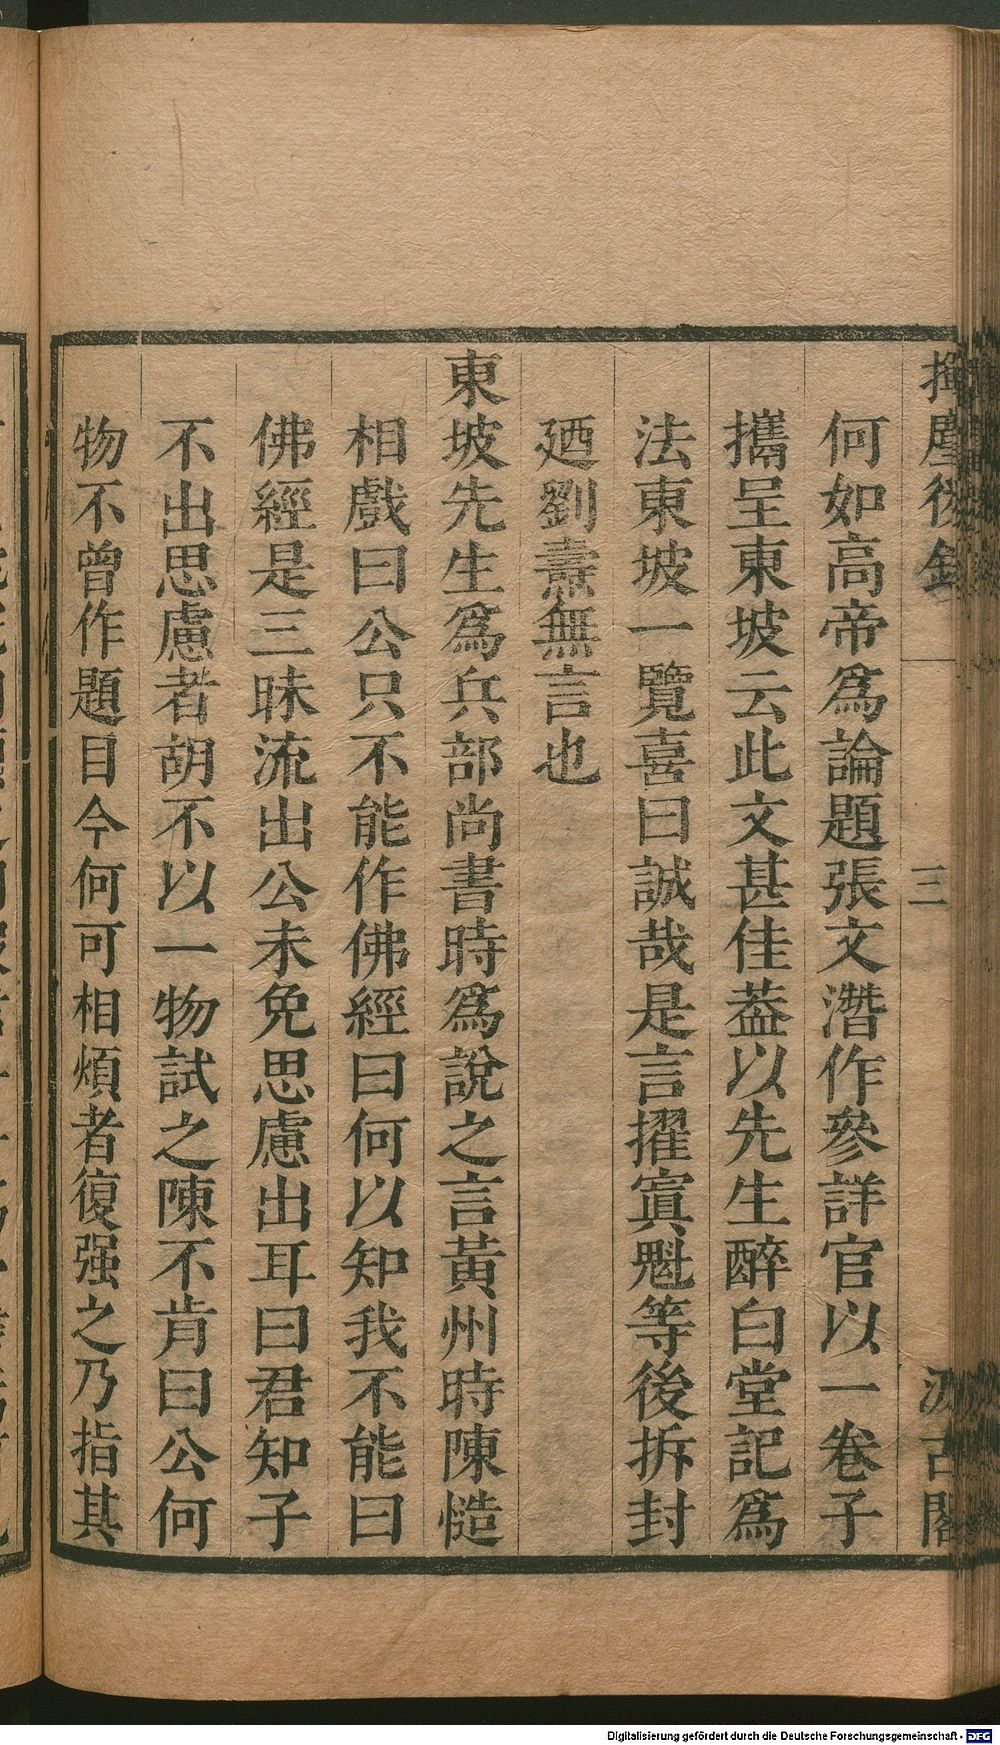 揮麈後錄
三
汲古閣
何如高帝爲論題張文潛作參詳官以一卷子
攜呈東坡云此文甚佳葢以先生醉白堂記爲
法東坡一覽喜曰誠哉是言擢寘魁等後拆封
廼劉燾無言也
東坡先生爲兵部尚書時爲說之言黃州時陳慥
相戲曰公只不能作佛經曰何以知我不能曰
佛經是三昧流出公未免思慮出耳曰君知子
不出思慮者胡不以一物試之陳不肯曰公何
物不曾作題目今何可相煩者復强之乃指其
Digitalisierung gefördert durch die Deutsche Forschungsgemeinschaft - DFG